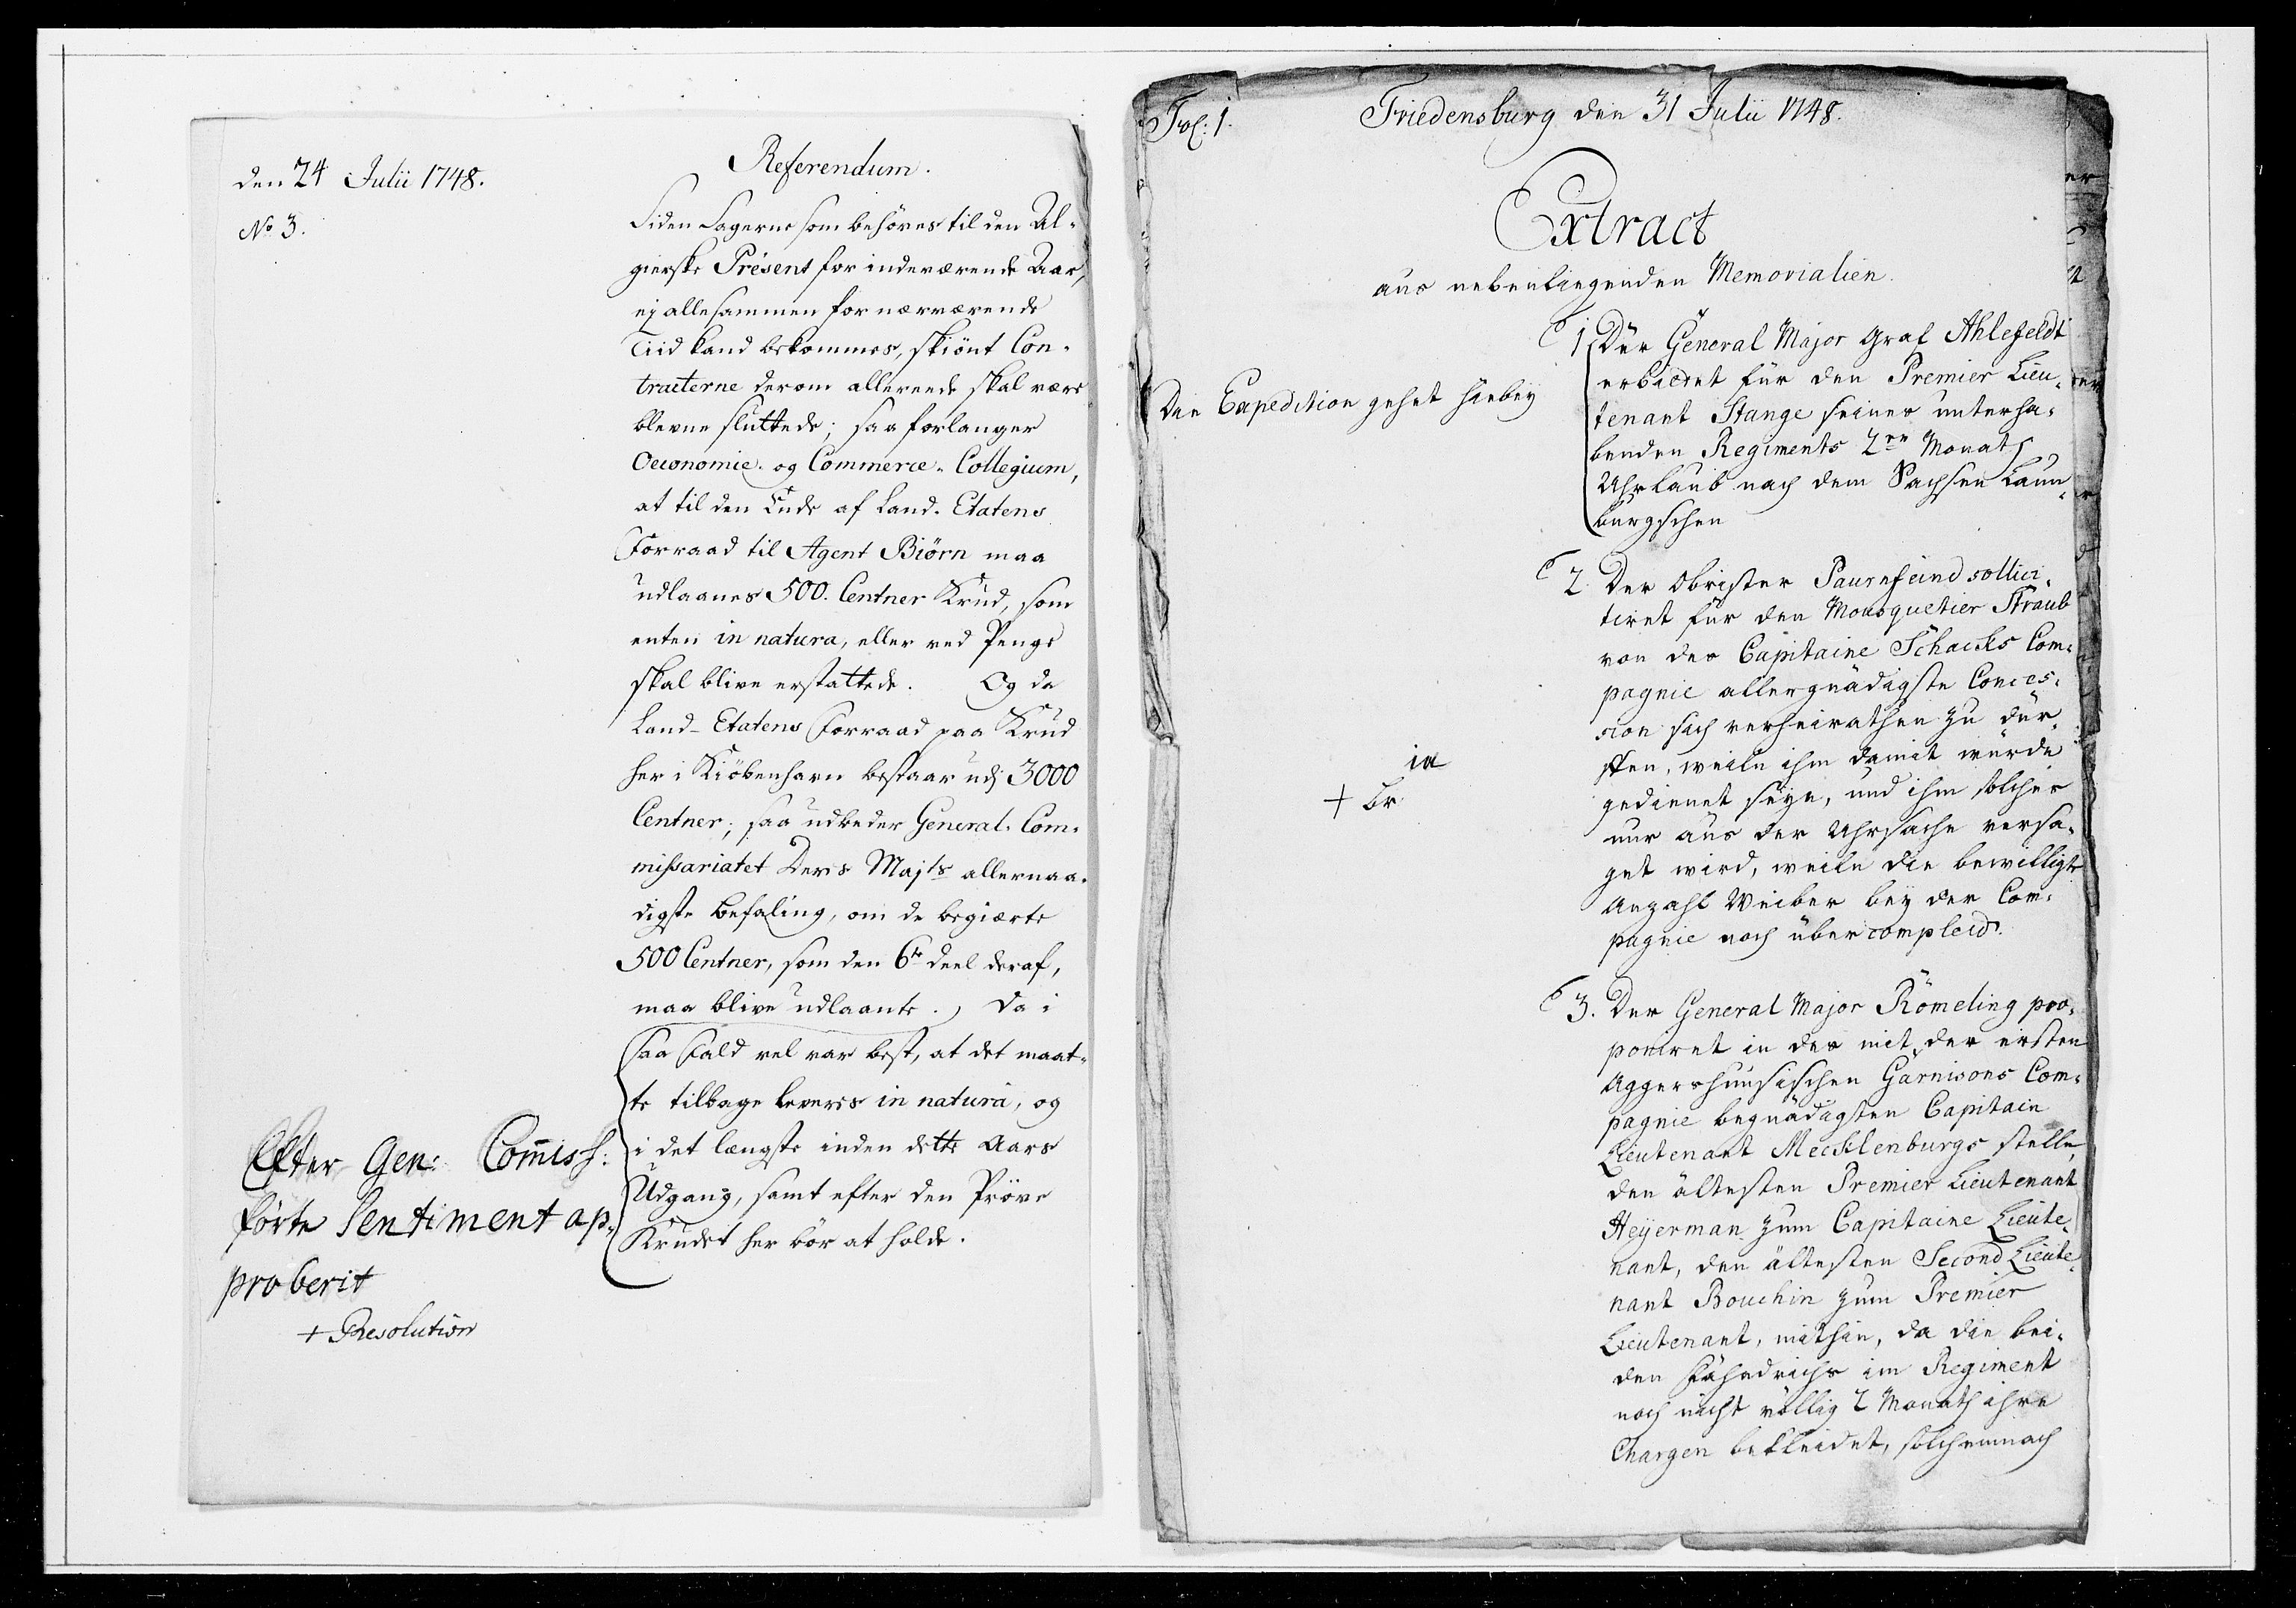 den 24 Julii 1748.
No 3.
Referendum.
Siden Sagerne som behöves til den Al-
gierske Présent for indeværende Aar,
ej allesammen for nærværende
Tiid kand bekommes, skiönt Con-
tracterne derom allereede skal være
blevne sluttede; saa forlanger
Oeconomie- og Commerce-Collegium,
at til den Ende af Land-Etatens
Forraad til Agent Biörn maa
udlaanes 500. Centner Krud, som
enten in natura, eller ved Penge
skal blive erstattede. Og da
Land-Etatens Forraad paa Krud
her i Kiöbenhavn bestaar udj 3000
Centner; saa udbeder General-Com-
missariatet Deris Majts allernaa-
digste Befaling, om de begiærte
500 Centner, som den 6te deel deraf,
maa blive udlaante. Da i
saa Fald vel var best, at det maat-
te tilbage leveres in natura, og
i det længste inden dette Aars
Udgang, samt efter den Pröve
Krudet her bör at holde.
Efter Gen: Commiss:
förte Sentiment ap-
proberit
+ Resolution
Fol: 1.
Friedensburg den 31 Julii 1748.
Extract
aus nebenliegenden Memorialien.
Die Expedition gehet hiebey
1. Der General Major Graf Ahlefeldt
erbietet für den Premier Lieu-
tenant Stange seines unterha-
benden Regiments 2en Monath
Uhrlaub nach dem Sachsen Lauen-
burgschen
ia
+ Br
2. Der Obrister Paurnfeind sollici-
tiret für den Mousquetier Straub
von des Capitaine Schacks Com-
pagnie allergnädigste Conces-
sion sich verheirathen zu dür-
ffen, weile ihm damit würde
gedienet seyn, und ihm solches
nur aus der Uhrsache versa-
get wird, weile die bewilligte
Anzahl Weiber bey der Com-
pagnie noch über compleid.
3. Der General Major Römeling pro-
poniret in des mit der ersten
Aggershuusischen Garnisons Com-
pagnie begnädigten Capitain
Lieutenant Mecklenburgs stelle,
den ältesten Premier Lieutenant
Heyerman zum Capitaine Lieute-
nant, den ältesten Second Lieute-
nant Bouchin zum Premier
Lieutenant, mithin, da die bei-
den Fähndrichs im Regiment
noch nicht völlig 2 Monath ihre
Chargen bekleidet, solchemnach